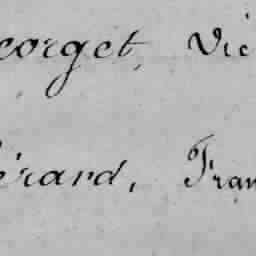 eorget, Vic
érard, Fran